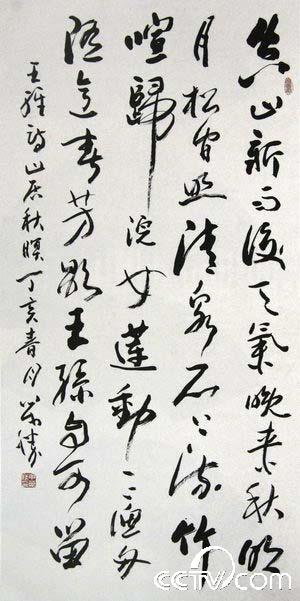 空山新雨後天氣晚來秋明
月松間照清泉石上流竹
喧歸浣女蓮動下漁舟
隨意春芳歇王孫自可留
王維詩山居秋暝丁亥春月
CCTV.com